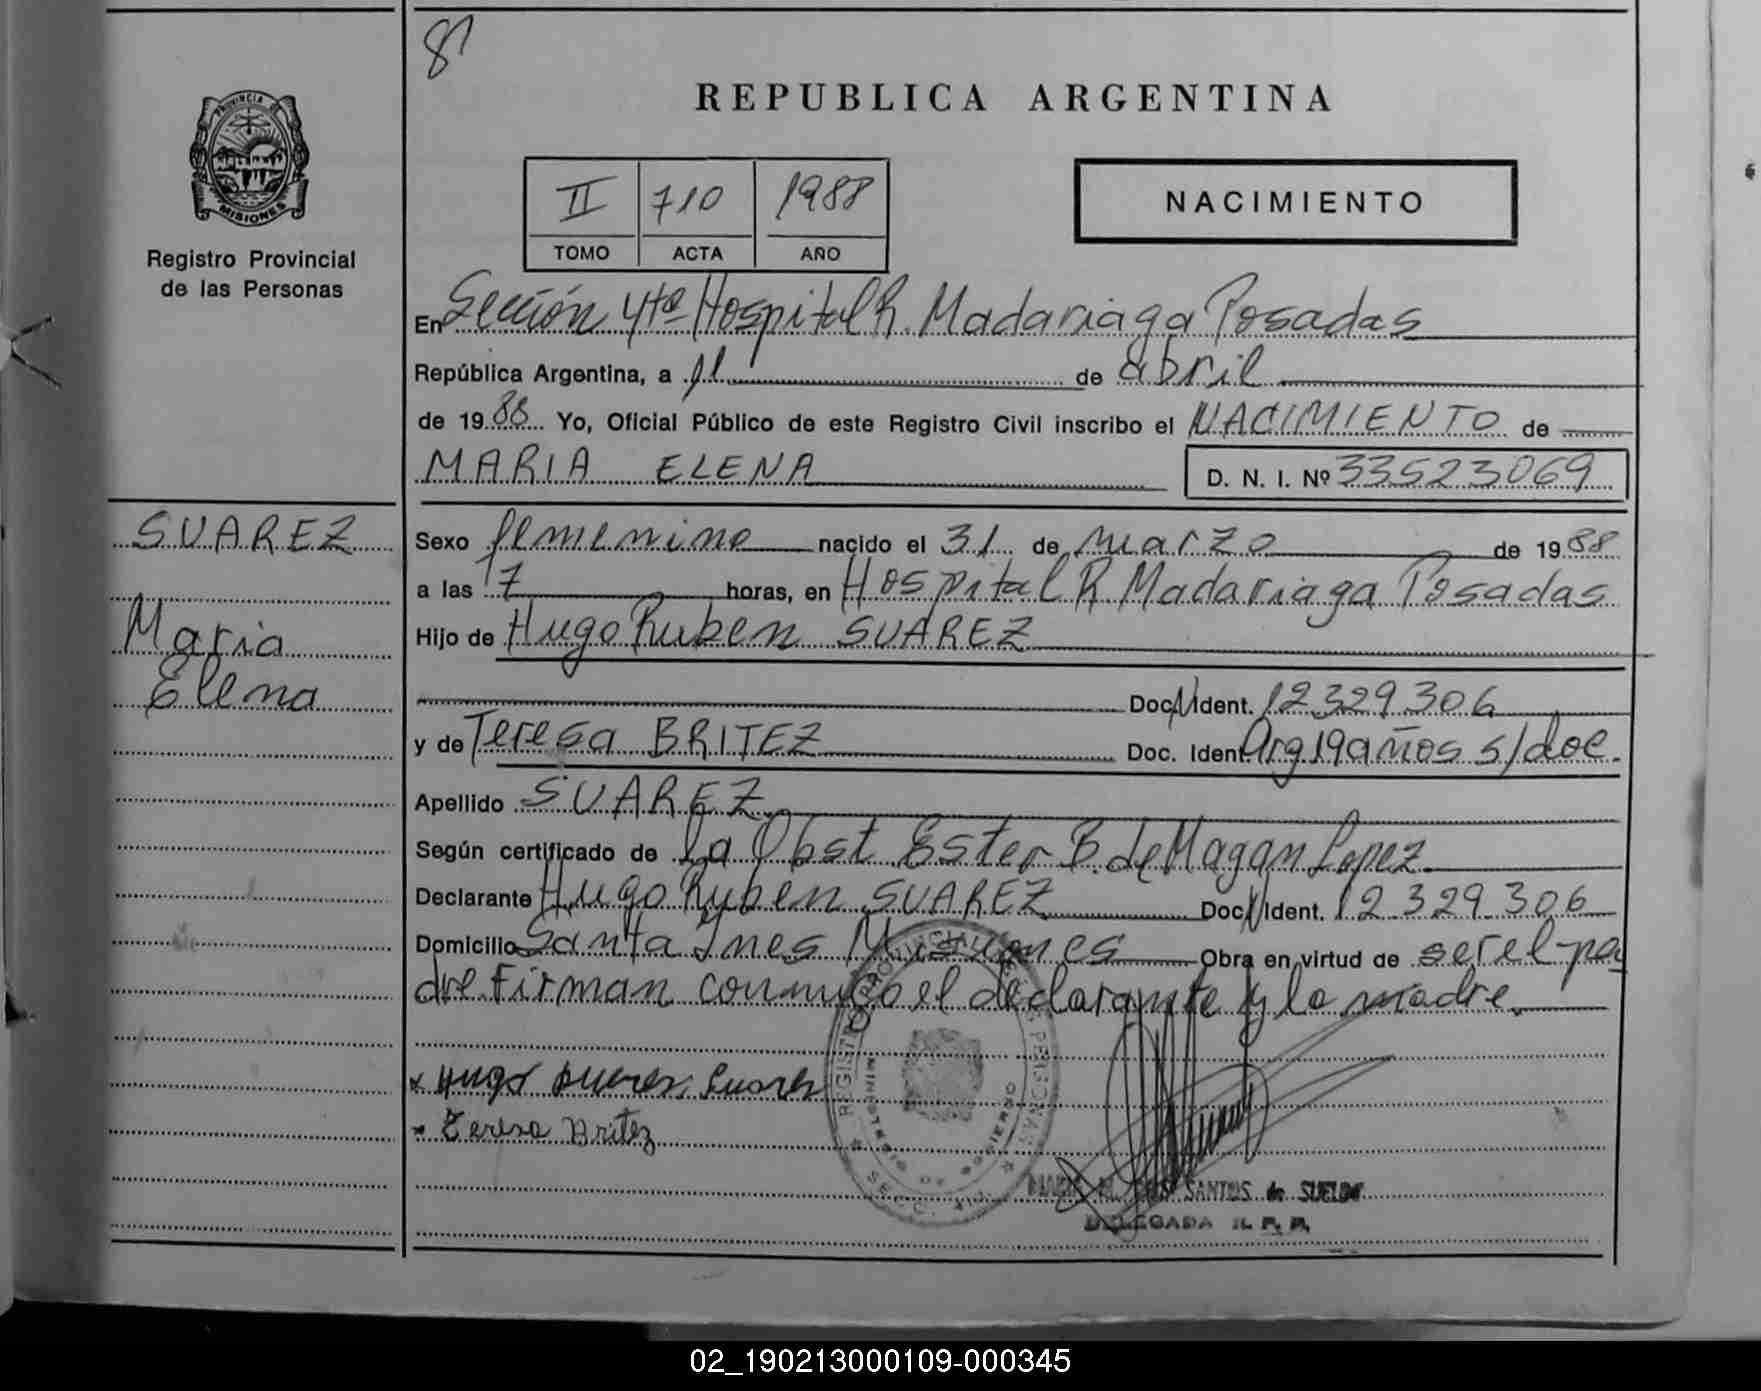 81
REPUBLICA ARGENTINA
PROVINCIA DE
MISIONES
Registro Provincial
de las Personas
II 710 1988
TOMO ACTA AÑO
NACIMIENTO
En Sección 4ta Hospital R. Madariaga Posadas
República Argentina, a 11 de abril
de 1988 Yo, Oficial Público de este Registro Civil inscribo el NACIMIENTO de
MARIA ELENA D. N. I. Nº 33523069
SUAREZ
Maria
Elena
Sexo femenino nacido el 31 de marzo de 1988
a las 17 horas, en Hospital R Madariaga Posadas
Hijo de Hugo Ruben SUAREZ
Doc. Ident. 12329306
y de Teresa BRITEZ Doc. Ident. Arg 19 años s/doc.
Apellido SUAREZ
Según certificado de La Obst Ester B. de Magan Lopez
Declarante Hugo Ruben SUAREZ Doc. Ident. 12.329.306
Domicilio Santa Ines Misiones Obra en virtud de ser el pa
dre Firman conmigo el declarante y la madre.
x Hugo Suarez
x Teresa Britez
REGISTRO PROVINCIAL DE LAS PERSONAS
MINISTERIO DE GOBIERNO
SANTOS de SUELDO
DELEGADA R. P. P.
02_190213000109-000345